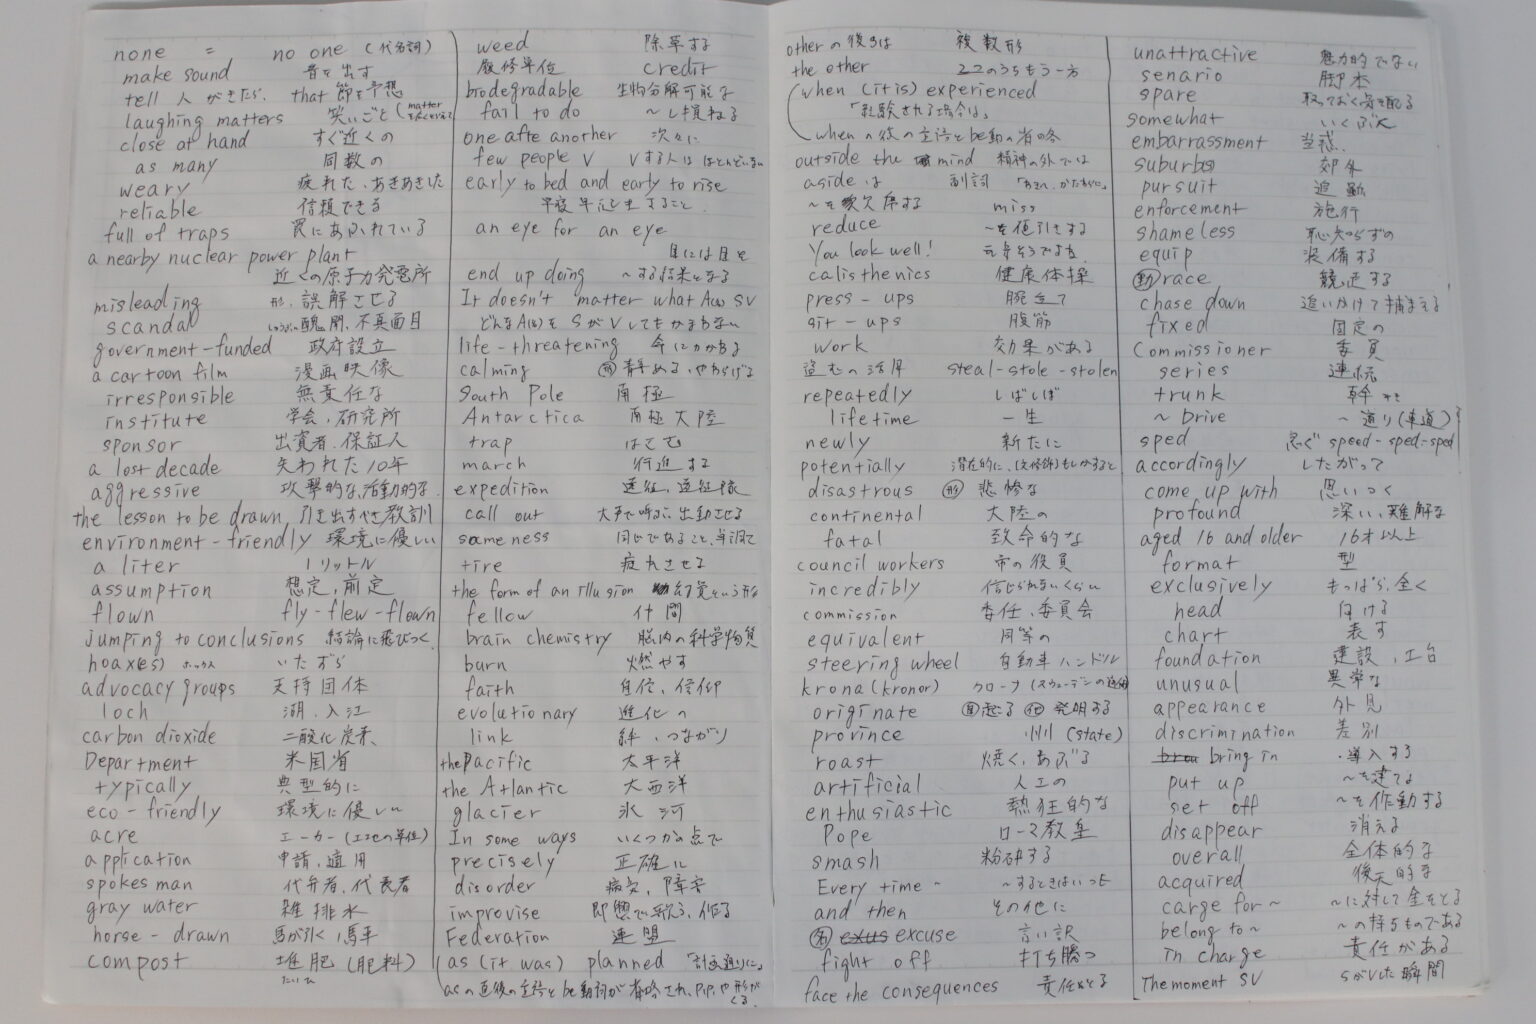 none = no one (代名詞)
make sound 音を出す
tell 人 がきたら、 that 節を予想
laughing matters 笑いごと (matter
close at hand すぐ近くの
as many 同数の
weary 疲れた、あきあきした
reliable 信頼できる
full of traps 罠にあふれている
a nearby nuclear power plant
近くの原子力発電所
misleading 形、誤解させる
scandal 醜聞、不真面目
government-funded 政府設立
a cartoon film 漫画映像
irresponsible 無責任な
institute 学会、研究所
sponsor 出資者、保証人
a lost decade 失われた10年
aggressive 攻撃的な、活動的な
the lesson to be drawn 引き出すべき教訓
environment-friendly 環境に優しい
a liter 1リットル
assumption 想定、前定
flown fly-flew-flown
jumping to conclusions 結論に飛びつく
hoax(es) ホックス いたずら
advocacy groups 支持団体
loch 湖、入江
carbon dioxide 二酸化炭素
Department 米国省
typically 典型的に
eco-friendly 環境に優しい
acre エーカー(エーカーの単位)
application 申請、適用
spokesman 代弁者、代表者
gray water 雑排水
horse-drawn 馬が引く、馬車
compost 堆肥(肥料)
たいひ
weed 除草する
履修単位 credit
brodegradable 生物分解可能な
fail to do ～し損ねる
one afte another 次々に
few people V Vする人はほとんどいない
early to bed and early to rise
早寝早起きすること
an eye for an eye
目には目を
end up doing ～する結果となる
It doesn't matter what A(は) SV
どんなA(を)をSがVしてもかまわない
life-threatening 命にかかわる
calming 形 静める、やわらげる
South Pole 南極
Antarctica 南極大陸
trap はさむ
march 行進する
expedition 遠征、遠征隊
call out 大声で呼ぶ、出動させる
sameness 同じであること、単調さ
tire 疲れさせる
the form of an illusion 幻覚という形
fellow 仲間
brain chemistry 脳内の科学物質
burn 燃やす
faith 自信、信仰
evolutionary 進化の
link 絆、つながり
the Pacific 太平洋
the Atlantic 大西洋
glacier 氷河
In some ways いくつかの点で
precisely 正確に
disorder 病気、障害
improvise 即興で歌う、作る
Federation 連盟
as (it was) planned 「計画通りに」
asの直後の主語とbe動詞が省略され、p.p.や形がくる
otherの後ろは 複数形
the other 2つのうちもう一方
when (it is) experienced
「経験される場合は」
whenの後の主語とbe動の省略
outside the mind 精神の外では
aside は 副詞
～を欠席する miss
reduce ～を値引きする
You look well! 元気そうですね
calisthenics 健康体操
press-ups 腕立て
sit-ups 腹筋
work 効果がある
盗むの活用 steal-stole-stolen
repeatedly しばしば
lifetime 一生
newly 新たに
potentially 潜在的に、(文修飾)もしかすると
disastrous 形 悲惨な
continental 大陸の
fatal 致命的な
council workers 市の役員
incredibly 信じられないくらい
commission 委任、委員会
equivalent 同等の
steering wheel 自動車ハンドル
krona(kronor) クローナ(スウェーデンの通貨)
originate 自 起こる 他 発明する
province 州(state)
roast 焼く、あぶる
artificial 人工の
enthusiastic 熱狂的な
Pope ローマ教皇
smash 粉砕する
Every time～ ～するときはいつも
and then その他に
名 excuse 言い訳
fight off 打ち勝つ
face the consequences 責任をとる
unattractive 魅力的でない
senario 脚本
spare 取っておく
somewhat いくぶん
embarrassment 当惑
suburb 郊外
pursuit 追跡
enforcement 施行
shameless 恥知らずの
equip 装備する
動 race 競走する
chase down 追いかけて捕まえる
fixed 固定の
Commissioner 委員
series 連続
trunk 幹
～ Drive ～通り(車道)
sped 急ぐ speed-sped-sped
accordingly したがって
come up with 思いつく
profound 深い、難解な
aged 16 and older 16才以上
format 型
exclusively もっぱら、全く
head 向ける
chart 表す
foundation 建設、土台
unusual 異常な
appearance 外見
discrimination 差別
bring in ・導入する
put up ～を建てる
set off ～を作動する
disappear 消える
overall 全体的な
acquired 後天的な
carge for～ ～に対して金をとる
belong to～ ～の持ちものである
in charge 責任がある
The moment SV SがVした瞬間